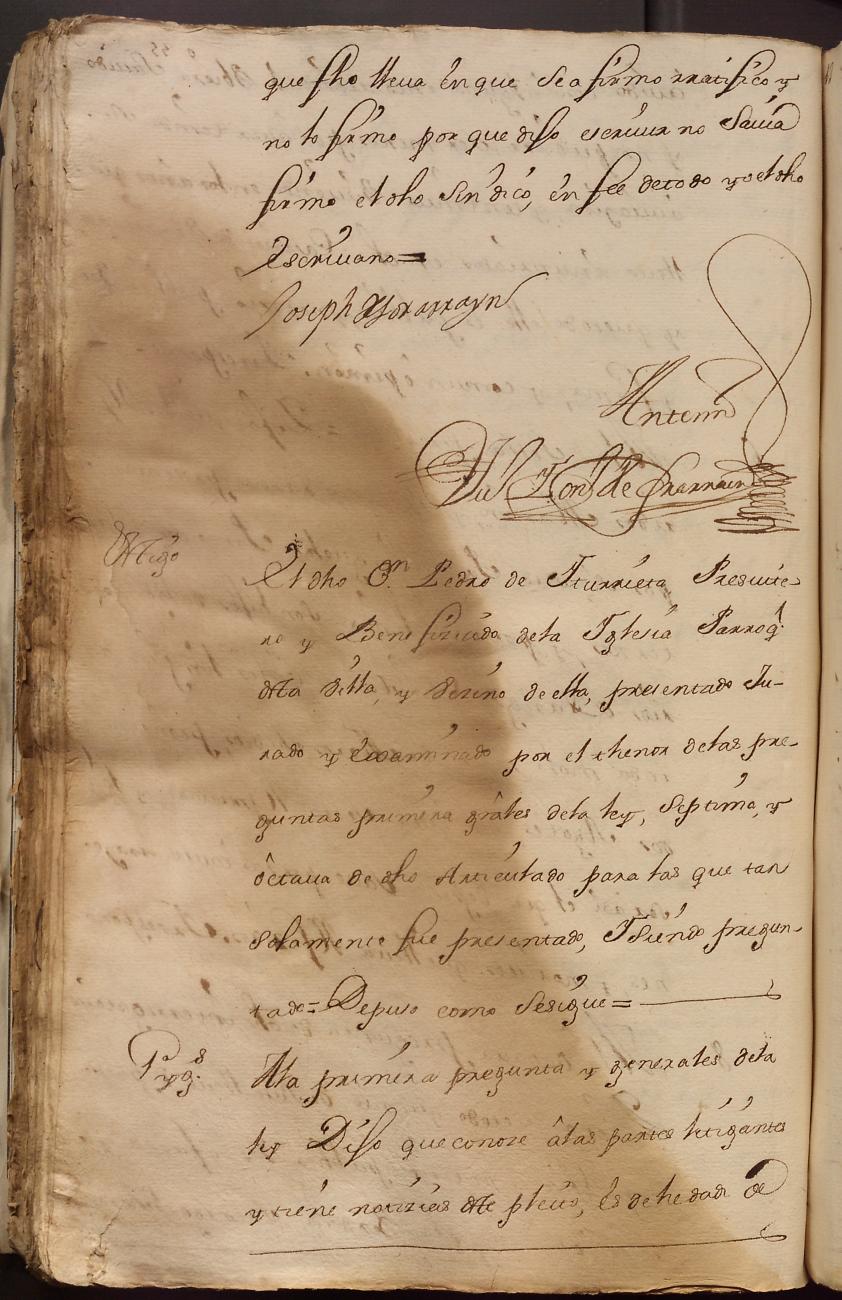 que fho lleua en que se afirmo rratifico y
no lo firmo por que dijo escriuir no Sauia
firmo el dho Sindico, en fee de todo yo el dho
escriuano=
Joseph
Antemi
de
Ttigo
El dho Dn. Pedro de Iturrieta Presuite-
ro y Benefiziado de la Iglesia Parroql.
dtta Villa, y vezino de ella, presentado Ju-
rado y examinado por el thenor de las pre-
guntas primera grâles de la ley, septima, y
octaua de dho Articulado para las que tan
solamente fue presentado, Isiendo pregun-
tado= Depuso como sesigue=
1a y gs.
Ala primera pregunta y generales dela
ley Dijo que conoze âlas partes litigantes
y tiene notizias dtte pleito, es de hedad de